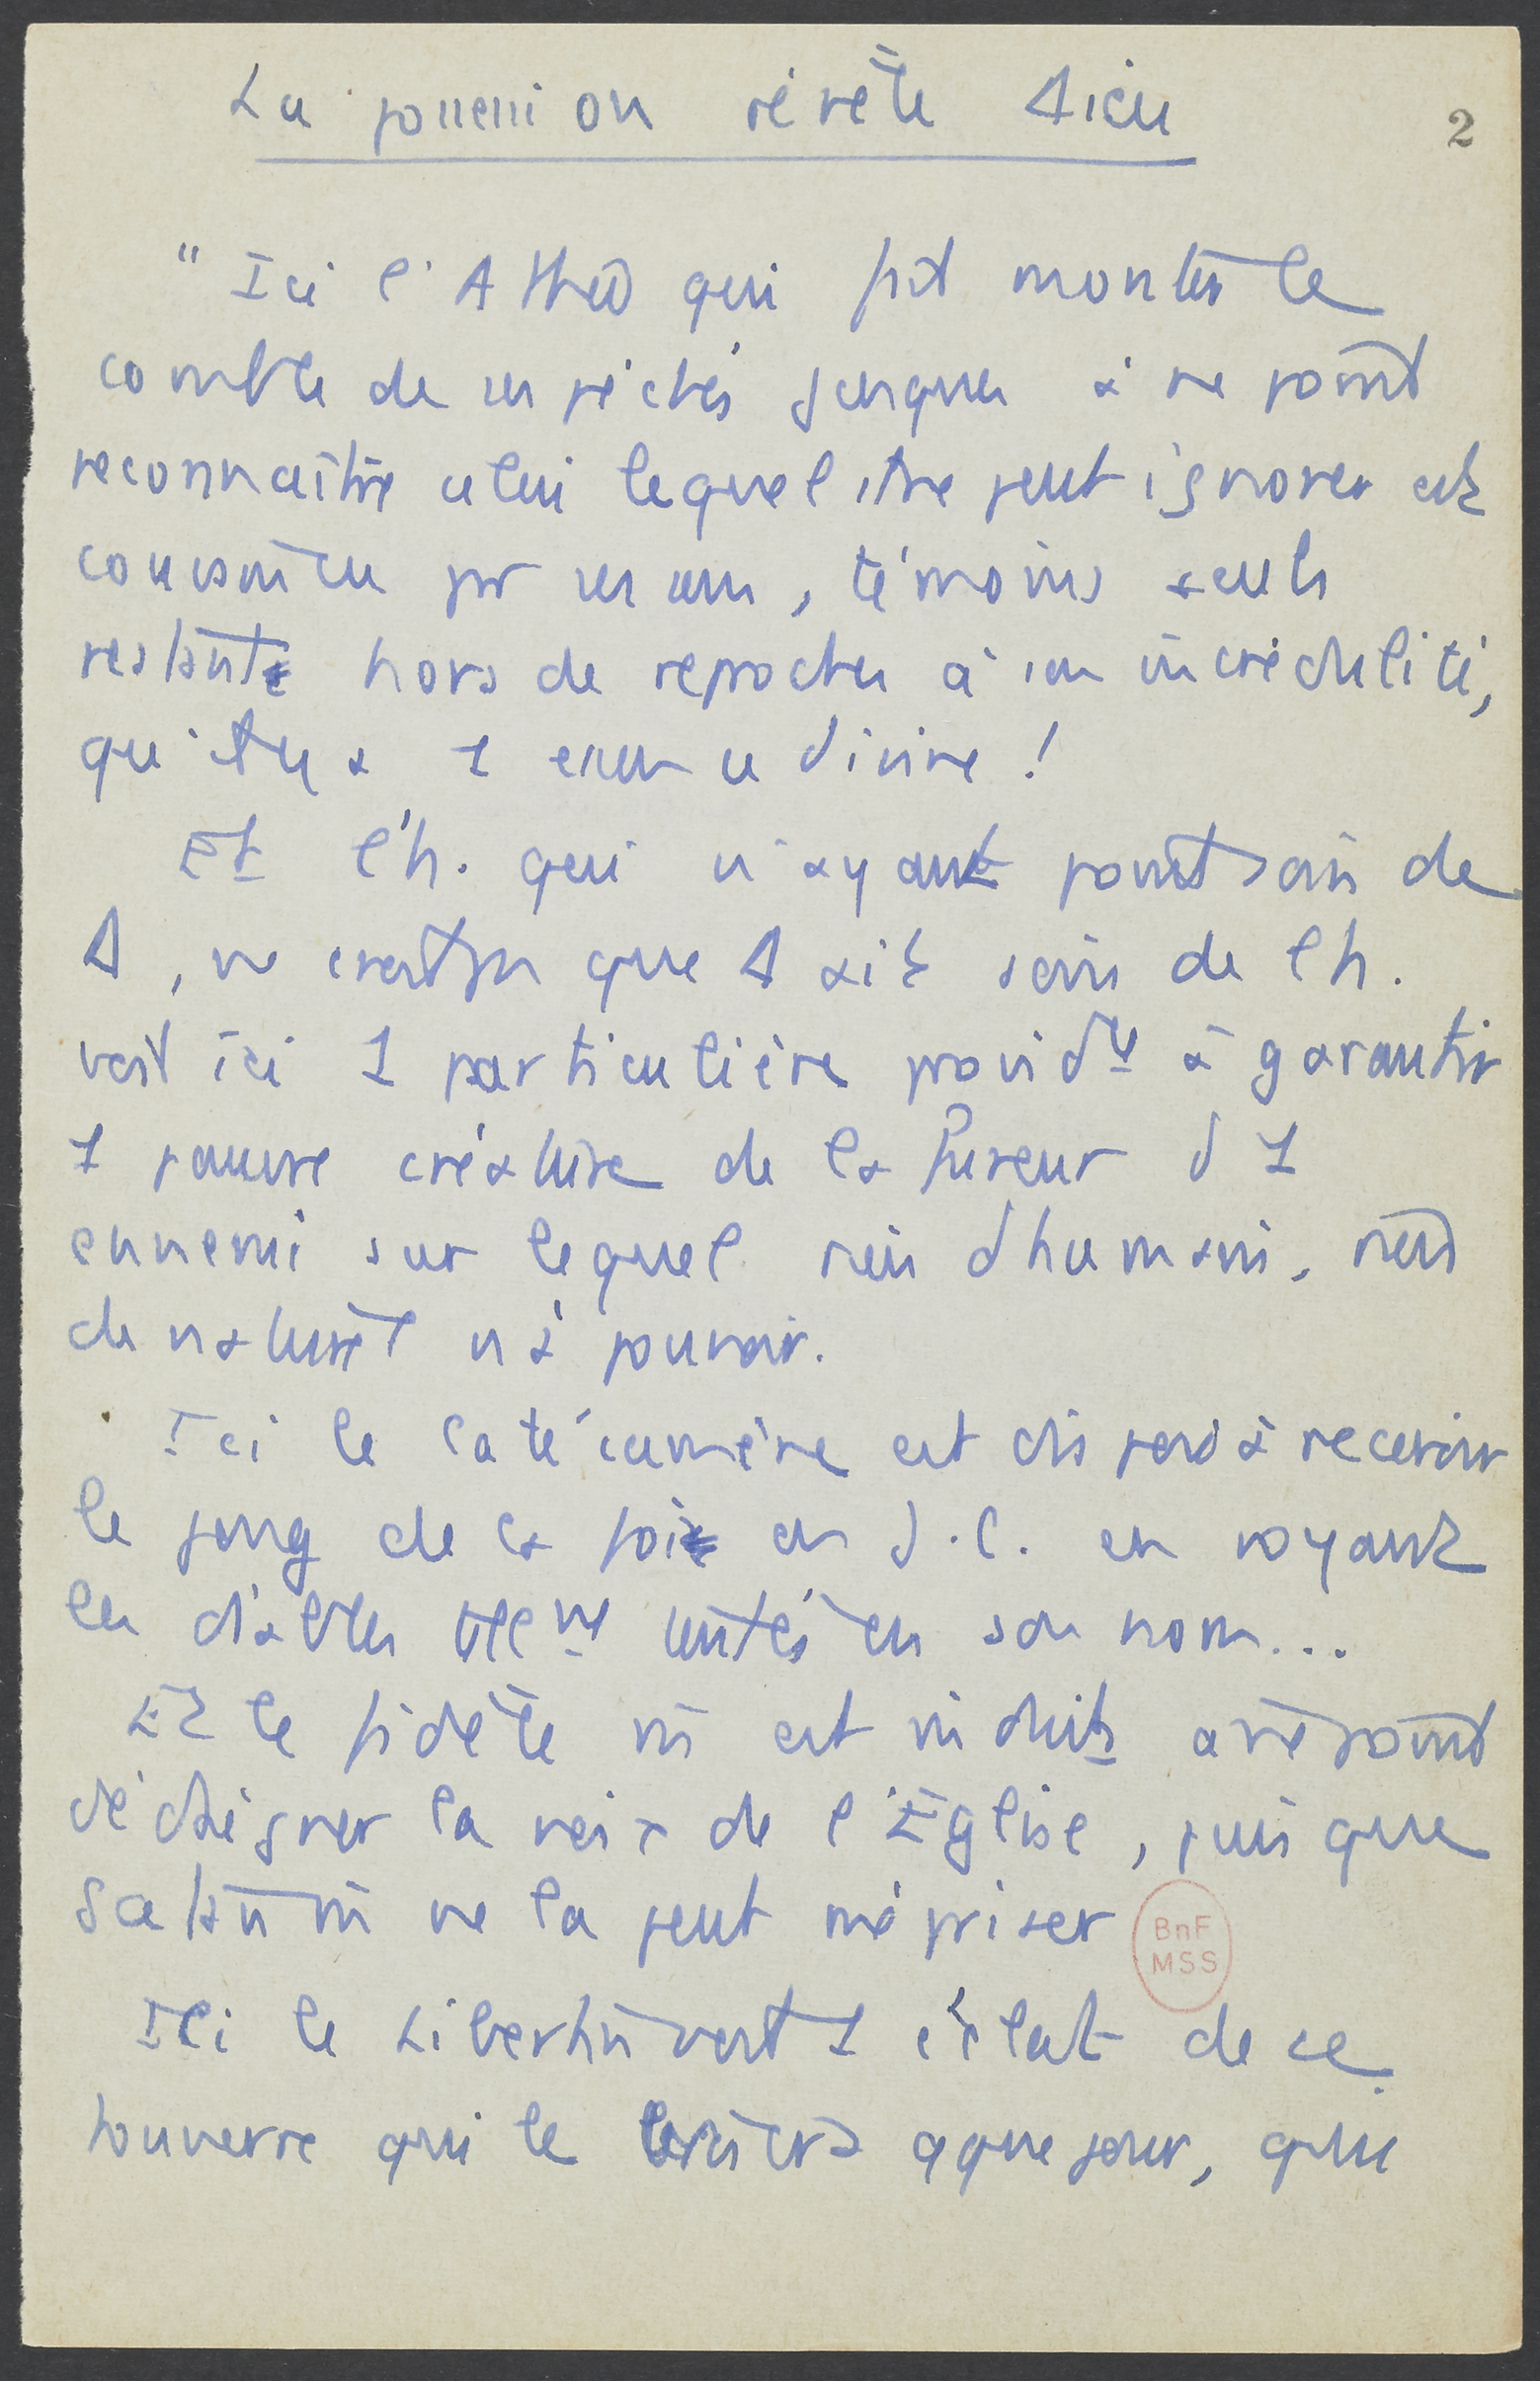 La possession révèle Dieu
2
" Ici l'Athée qui fait monter le
comble de ses péchés jusques à ne point
reconnaître celui lequel il ne peut ignorer est
convaincu par ses sens, témoins seuls
restants hors de reproches à son incrédulité,
qu'il y a 1 essence divine !
Et l'h. qui n'ayant point soin de
Δ, ne croit pas que Δ ait soin de l'h.
voit ici 1 particulière provid ce à garantir
1 pauvre créature de la fureur d'1
ennemi sur lequel rien d'humain, rien
de naturel n'a pouvoir.
Ici le catécumène est disposé à recevoir
le joug de la foi en J.C. en voyant
les diables tellement
en son nom...
Et le fidèle ici est induit à ne point
dédaigner la voix de l'Église, puisque
Satan ici ne la peut mépriser
BnF
MSS
Ici le Libertin voit 1 éclat de ce
tonnerre qui le brisera qque jour, que